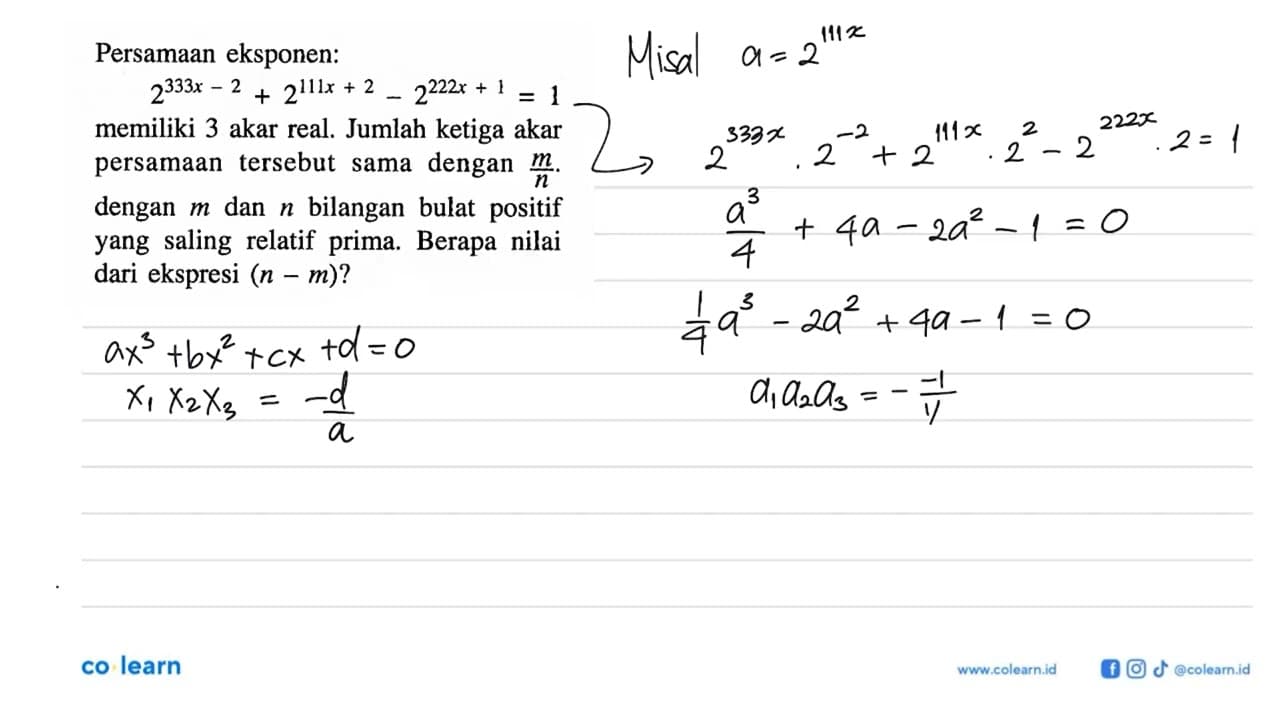 Persamaan eksponen:
2^{333x - 2} + 2^{111x + 2} - 2^{222x + 1} = 1
memiliki 3 akar real. Jumlah ketiga akar
persamaan tersebut sama dengan \frac{m}{n}.
dengan m dan n bilangan bulat positif
yang saling relatif prima. Berapa nilai
dari ekspresi (n - m)?
ax^3 + bx^2 + cx + d = 0
x_1 x_2 x_3 = \frac{-d}{a}
Misal a = 2^{111x}
2^{333x} . 2^{-2} + 2^{111x} . 2^2 - 2^{222x} . 2 = 1
\frac{a^3}{4} + 4a - 2a^2 - 1 = 0
\frac{1}{4}a^3 - 2a^2 + 4a - 1 = 0
a_1 a_2 a_3 = - \frac{-1}{1/}
co learn
www.colearn.id @colearn.id